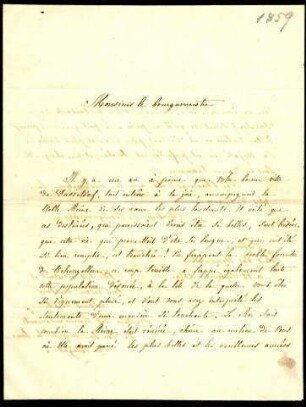 1859
Monsieur le bourguemestre
Il y a un an à peine que votre bonne ville
de Dusseldorf, tout entière à la joie, accompagnait la
Noble Reine de ses vœux les plus touchants. Et voilà que
ses destinées, qui paraissaient devoir être si belles, sont brisées,
que cette vie qui promettait d'être si longue, et qui eut été
si bien remplie, est tranchée! En frappant la noble famille
de Hohenzollern ce coup terrible a frappé également toute
cette population dévouée, à la tête de la quelle vous êtes
si dignement placé, et dont vous avez interprété les
sentiments d'une manière si touchante. Le Roi sait
combien la Reine était révérée, chérie au milieu de vous
où Elle avait passé les plus belles et les meilleures années